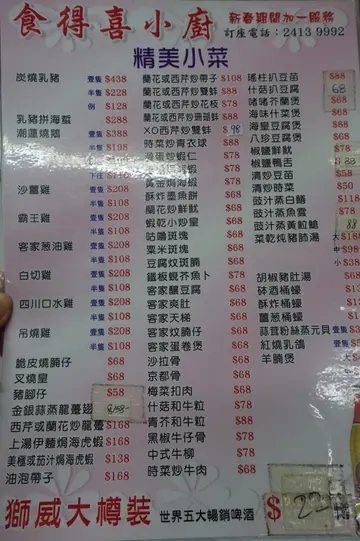 食得喜小廚
新春期間加一服務
訂座電話：2413 9992
精美小菜
炭燒乳豬 壹隻 $438
半隻 $228
例 $128
乳豬拼海蜇 $288
潮蓮燒鵝 壹隻 $388
半隻 $198
下庄 $118
沙薑雞 壹隻 $208
半隻 $108
霸王雞 壹隻 $208
半隻 $108
客家葱油雞 壹隻 $208
半隻 $108
白切雞 壹隻 $208
半隻 $108
四川口水雞 壹隻 $208
半隻 $108
吊燒雞 壹隻 $208
半隻 $108
脆皮燒腩仔 $68
叉燒皇 $68
豬腳仔 $58
金銀蒜蒸龍躉翅
西芹或蘭花炒龍躉 $168
上湯伊麵焗海虎蝦 $168
美極或茄汁焗海虎蝦 $138
油泡帶子 $168
蘭花或西芹炒帶子 $108
蘭花或西芹炒雙蚌 $88
蘭花或西芹炒花枝 $78
蘭花或西芹炒珊瑚蚌 $88
XO西芹炒雙蚌 $98
時菜炒青衣球 $88
滑蛋炒蝦仁 $78
黃金焗海蝦 $78
酥炸墨魚餅 $68
蘭花炒鮮魷 $68
蝦乾小炒皇 $68
咕嚕斑塊 $68
粟米斑塊 $68
豆腐炆斑腩 $68
鐵板蜆芥魚卜 $78
客家釀豆腐 $68
客家爽肚 $68
客家天梯 $68
客家炆腩仔 $68
客家蛋卷煲 $68
沙拉骨 $68
京都骨 $68
梅菜扣肉 $68
什菇和牛粒 $78
青芥和牛粒 $88
黑椒牛仔骨 $78
中式牛柳 $78
時菜炒牛肉 $68
瑤柱扒豆苗 $88
什菇扒豆腐 68
啫啫芥蘭煲 $68
海味什菜煲 $68
海皇豆腐煲 $88
八珍豆腐煲 $68
椒鹽鮮魷 $78
椒鹽鴨舌 88
清炒豆苗 $58
清炒時菜 $50
豉汁蒸白鱔
豉汁蒸魚雲 $78
豉汁蒸黃魟鯰 88
菜乾炖豬肺湯
胡椒豬肚湯
砵酒桶蠔
酥炸桶蠔
薑葱桶蠔
蒜茸粉絲蒸元貝
紅燒乳鴿
羊腩煲
獅威大樽裝 世界五大暢銷啤酒 $